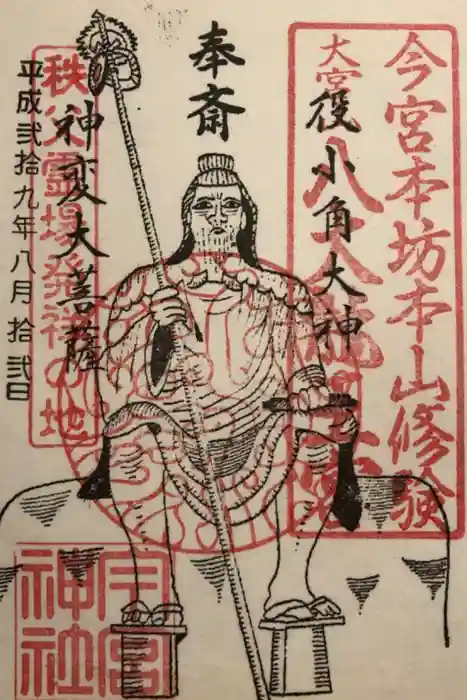 奉斎
今宮本坊本山修験
大宮
八大龍王宮
役小角大神
神変大菩薩
秩父霊場発祥の地
平成弐拾九年八月拾弐日
今宮神社